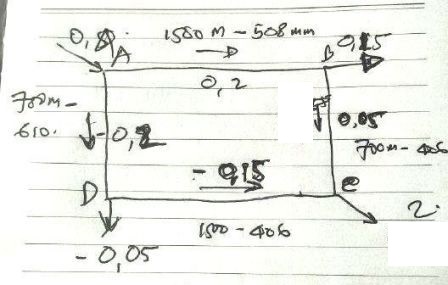 A
1500 M - 508 mm
B
0,2
700m -
610.
0,05
700m - 406
- 0,15
D
C
2.
1500 - 406
- 0,05